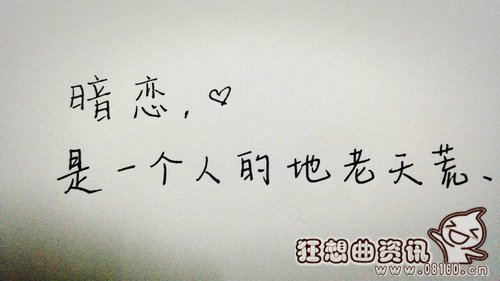 暗恋,♡
是一个人的地老天荒、
狂想曲资讯
www.08160.cn